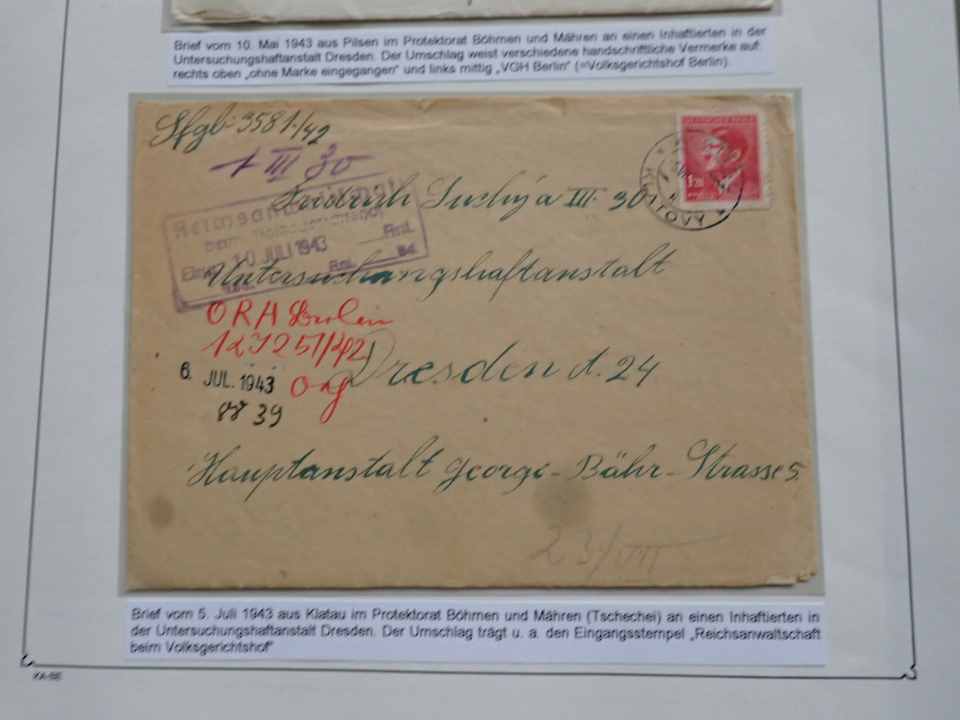 Brief vom 10. Mai 1943 aus Pilsen im Protektorat Böhmen und Mähren an einen Inhaftierten in der
Untersuchungshaftanstalt Dresden. Der Umschlag weist verschiedene handschriftliche Vermerke auf:
rechts oben „ohne Marke eingegangen“ und links mittig „VGH Berlin“ (=Volksgerichtshof Berlin).
Sfgb 3581/42
1 III 30
Reichsanwaltschaft
beim Volksgerichtshof
10. JULI 1943
Anl.
Bd.
Suchýa III. 30
KLATOVY
1.20
Untersuchungshaftanstalt
ORA Berlin
6. JUL. 1943
39
Dresden A. 24
Hauptanstalt George-Bähr-Strasse 5.
23/VIII
Brief vom 5. Juli 1943 aus Klatau im Protektorat Böhmen und Mähren (Tschechei) an einen Inhaftierten in
der Untersuchungshaftanstalt Dresden. Der Umschlag trägt u. a. den Eingangsstempel „Reichsanwaltschaft
beim Volksgerichtshof“
KA-BE